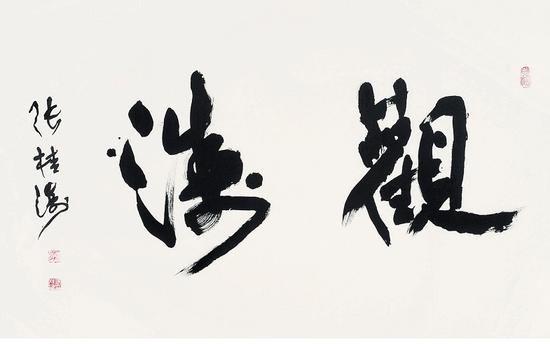 觀濤
張桂濤